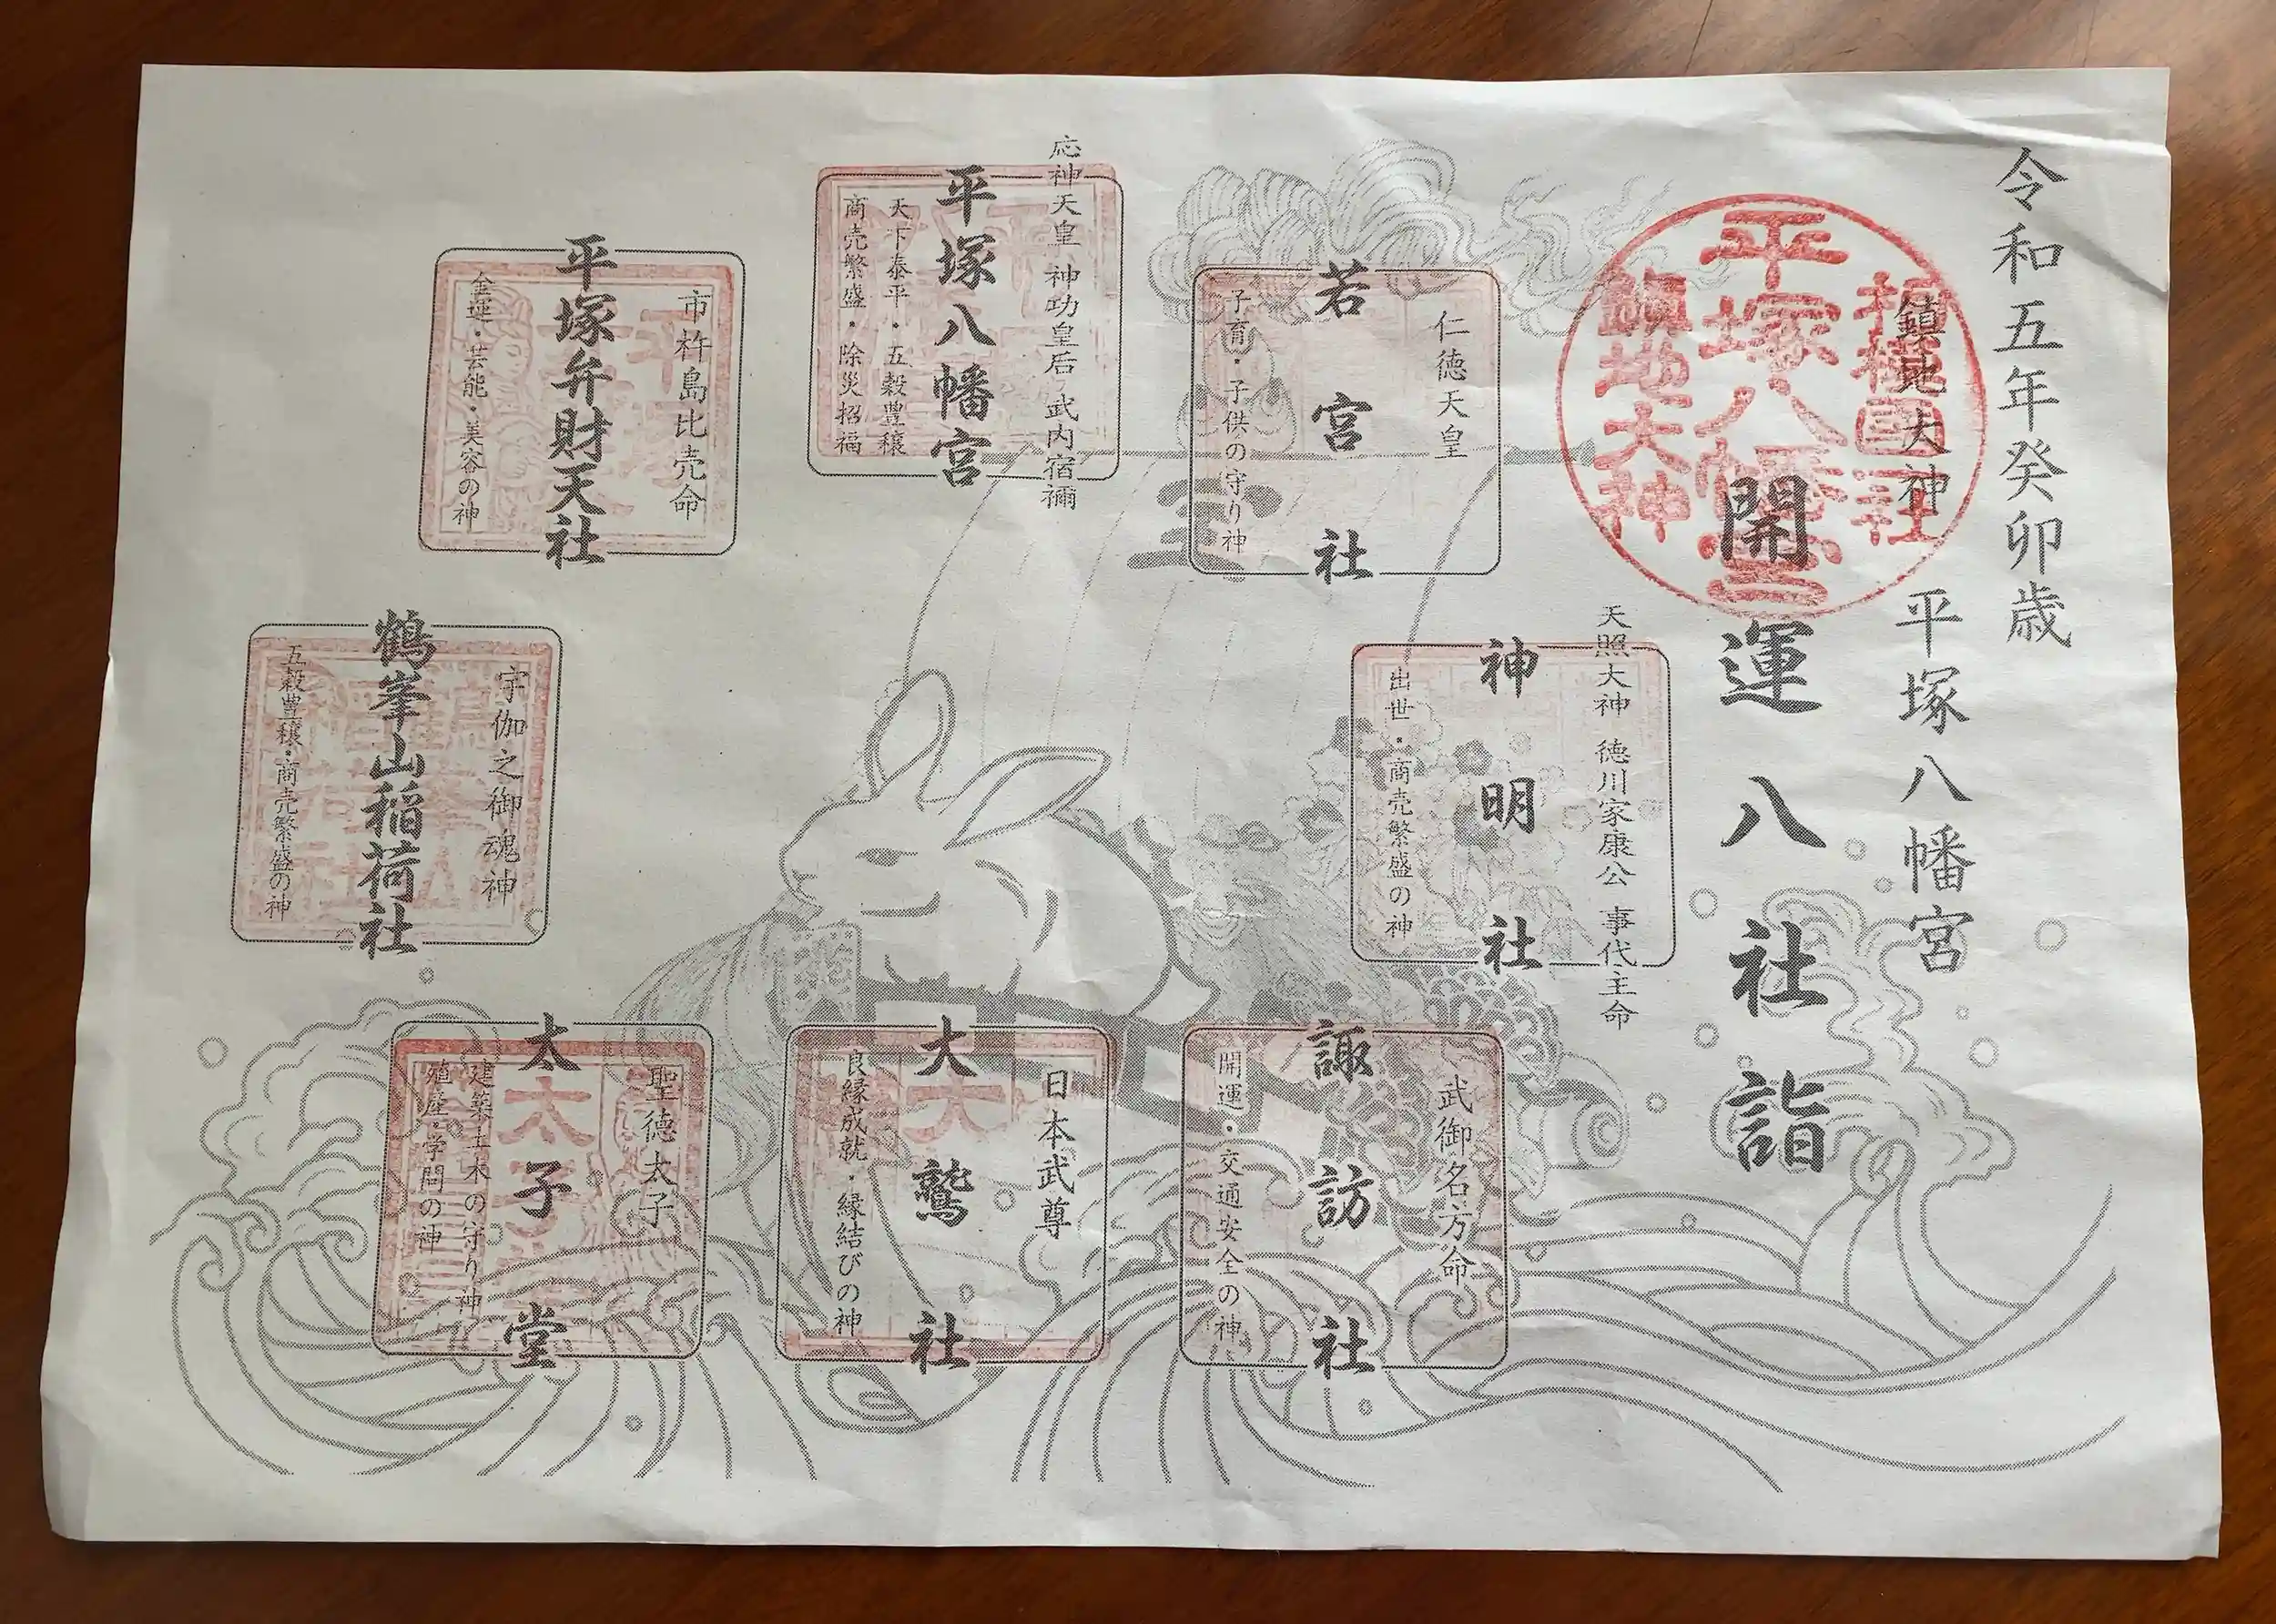 令和五年癸卯歳
鎮地大神 平塚八幡宮
開運八社詣
相模國一国社
平塚八幡宮
鎮地大神
天照大神 徳川家康公 事代主命
神明社
出世・商売繁盛の神
仁徳天皇
若宮社
子育・子供の守り神
応神天皇 神功皇后 武内宿禰
平塚八幡宮
天下泰平・五穀豊穣
商売繁盛・除災招福
市杵島比売命
平塚弁財天社
金運・芸能・美容の神
宇伽之御魂神
鶴峯山稲荷社
五穀豊穣・商売繁盛の神
武御名方命
諏訪社
開運・交通安全の神
日本武尊
大鷲社
良縁成就・縁結びの神
聖徳太子
太子堂
建築土木の守り神
殖産・学問の神
宝